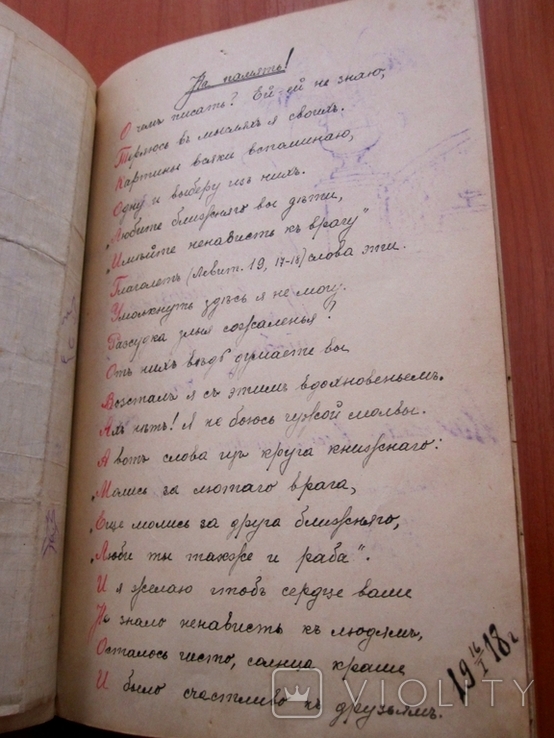 На память!
О чемъ писать? Ей-ей не знаю,
Теряюсь въ мысляхъ я своихъ.
Картины всяки вспоминаю,
Одну и выберу изъ нихъ.
„Любите ближнягъ вы дѣти,
„Имѣйте ненависть къ врагу"
Глаголетъ (Левит. 19, 17-18) слова эти.
Умолкнуть здѣсь я не могу.
Разсудка злыя сожаленья?
Отъ нихъ вѣдь думаете вы
Возсталъ я съ этимъ вдохновеньемъ.
Ахъ нѣтъ! Я не боюсь чужой молвы.
А вотъ слова изъ круга книжнаго:
„Молись за лютаго врага,
„Еще молись за друга ближняго,
„Люби ты также и раба".
И я желаю чтобъ сердце ваше
Не знало ненависть къ людямъ,
Осталось чисто, солнца краше
И было счастливо къ друзьямъ.
19 16/I 18 г
VIOLITY